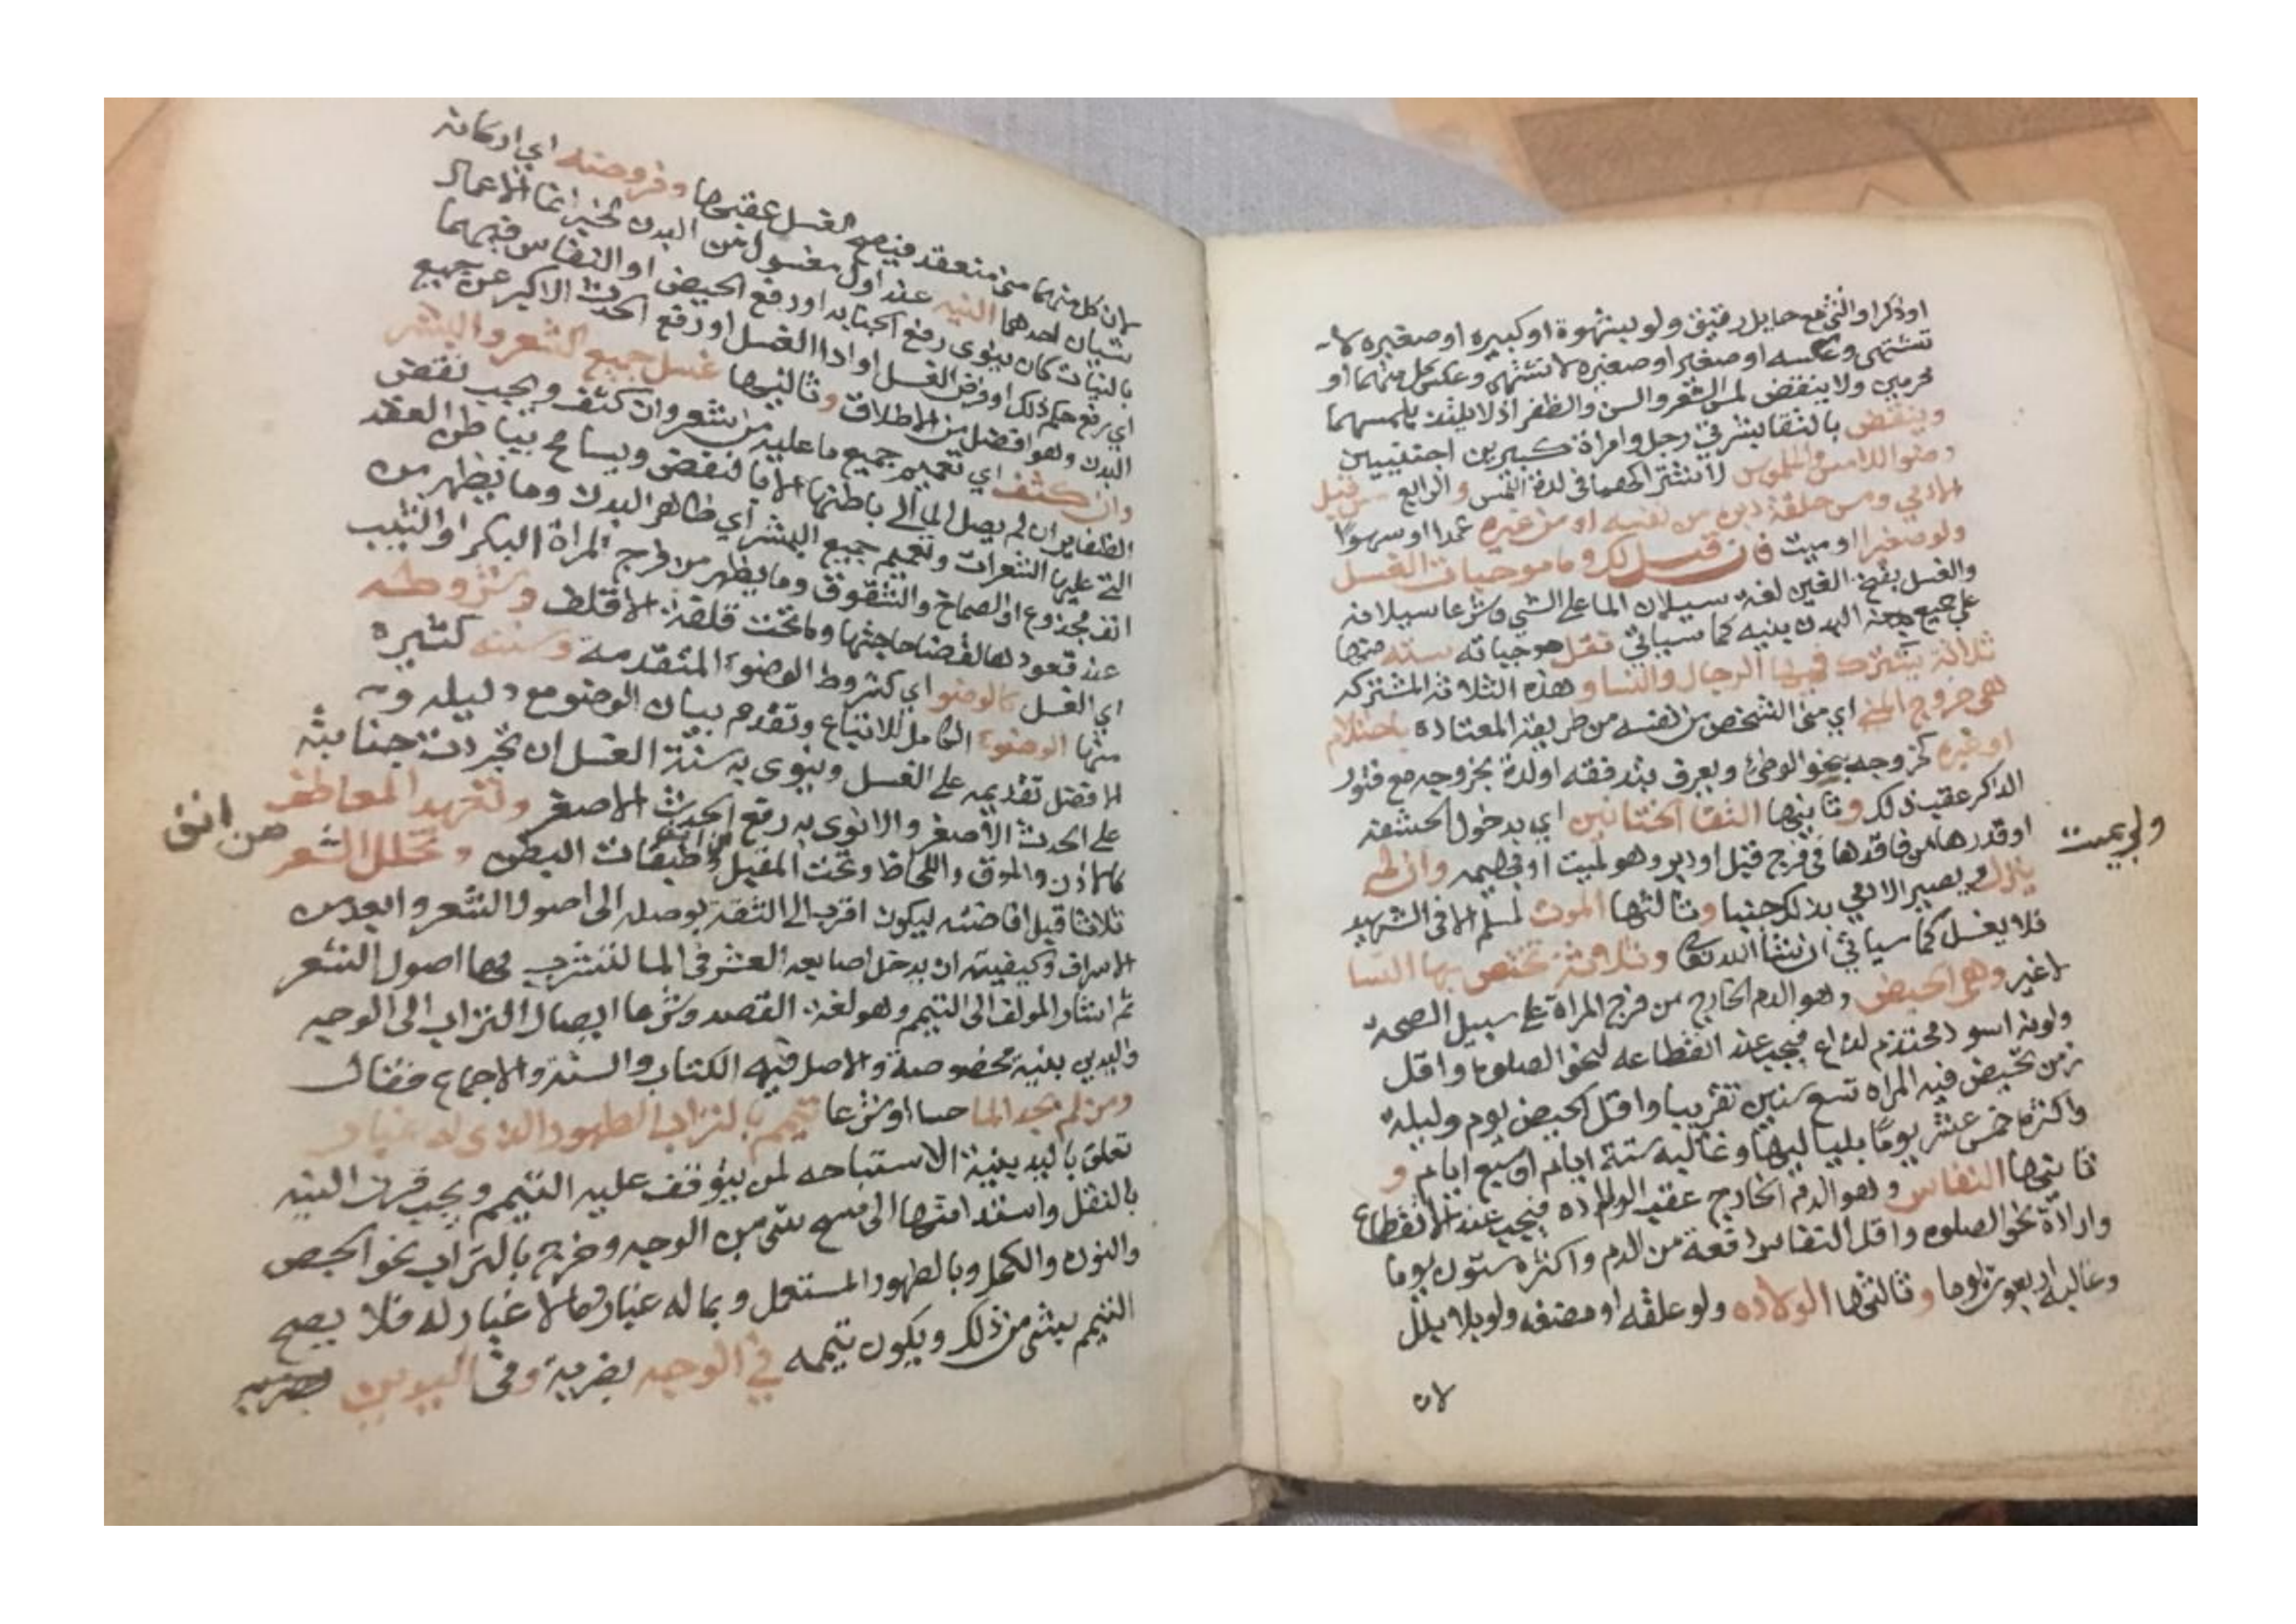 او ذكر او انثى مع حايل رقيق ولو بشهوة او كبيره او صغيره لا
تشتهى وعكسه او صغير او صغيره لا تشتهى وعكس كل منهما او
محرمين ولا ينقض لمس الشعر والسن والظفر اذ لا يلتذ بلمسهما
وينقض بالتقا بشرتي رجل وامراة كبيرين اجنبيين
وضو اللامس والملموس لاشتراكهما في لذة اللمس والرابع مس قبل
الادمي ومس حلقة دبره من نفسه او من غيره عمدا او سهوا
ولو صغيرا او ميت فان قيل لك وما موجبات الغسل
والغسل بفتح الغين لغة سيلان الما على الشي وشرعا سيلانه
على جميع البدن بنيه كما سياتي فقل موجباته سته منها
ثلاثة يشترك فيها الرجال والنسا وهذه الثلاثة المشتركه
هي خروج المني اي مني الشخص من نفسه من طريقه المعتاده باحتلام
او غيره كخروجه بنحو الوطئ ويعرف بتدفقه او لذة بخروجه مع فتور
الذكر عقب ذلك وثانيها التقا الختانين اي بدخول الحشفة
او قدرها من فاقدها في فرج قبل او دبر وهو لميت او بهيمه وان لم
ينزل ويصير الادمي بذلك جنبا وثالثها الموت لمسلم الا في الشهيد
فلا يغسل كما سياتي ان شا الله تعالى وثلاثة تختص بها النسا
لا غير وهي الحيض وهو الدم الخارج من فرج المراة على سبيل الصحة
ولونه اسود محتدم لذاع فيجب عند انقطاعه لنحو الصلوة واقل
زمن تحيض فيه المراه تسع سنين تقريبا واقل الحيض يوم وليلة
واكثره خمس عشر يوما بلياليها وغالبه ستة ايام او سبع ايام و
ثانيها النفاس وهو الدم الخارج عقب الولاده فيجب عند الانقطاع
وارادة نحو الصلوه واقل النفاس دفعة من الدم واكثره ستون يوما
وغالبه اربعون يوما وثالثها الولاده ولو علقه او مضغه ولو بلا بلل
لان
لان كل منهما مني منعقد فيصح الغسل عقبها وفروضه اي اركانه
شيان احدهما النيه عند اول مغسول من البدن لخبر انما الاعمال
بالنيات كان ينوى رفع الجنابه او رفع الحيض او النفاس فيهما
اي رفع حكم ذلك او فرض الغسل او ادا الغسل او رفع الحدث الاكبر عن جميع
البدن وهو افضل من الاطلاق وثانيها غسل جميع الشعر والبشر
وان كثف اي تعميم جميع ما عليه من شعر وان كثف ويجب نقض
الظفاير ان لم يصل الما الى باطنها الا بالنقض ويسامح بباطن العقد
التي عليها الشعرات وتعميم جميع البشر اي ظاهر البدن وما يظهر من
انف مجذوع او الصماخ والشقوق وما يظهر من فرج المراة البكر او الثيب
عند قعودها لقضا حاجتها وما تحت قلفة الاقلف وشروطه
اي الغسل كالوضو اي كشروط الوضوء المتقدمه وسننه كثيره
منها الوضوء الكامل للاتباع وتقدم بيان الوضو مع دليله و
الافضل تقديمه على الغسل وينوى به سنة الغسل ان تجردت جنابته
على الحدث الاصغر والا نوى به رفع الحدث الاصغر وتعهد المعاطف
كالاذن والموق واللحاظ وتحت المقبل وطبقات البطن وتخلل الشعر
ثلاثا قبل افاضته ليكون اقرب الى الثقة بوصله الى اصول الشعر وابعد من
الاسراف وكيفيته ان يدخل اصابعه العشر في الما لتشرب بها اصول الشعر
ثم اشار المولف الى التيمم وهو لغة القصد وشرعا ايصال التراب الى الوجه
واليدين بنية مخصوصة والاصل فيه الكتاب والسنة والاجماع فقال
ومن لم يجد الما حسا او شرعا تيمم بالتراب الطهور الذي له غبار
تعلق باليد بنية الاستباحه لمن يتوقف عليه التيمم ويجب قرن النيه
بالنقل واستدامتها الى مسح شى من الوجه وخرج بالتراب نحو الجص
والنوره والكحل وبالطهور المستعمل وبما له غبار ما لا غبار له فلا يصح
التيمم بشى من ذلك ويكون تيممه في الوجه بضربة وفي اليدين بضربه